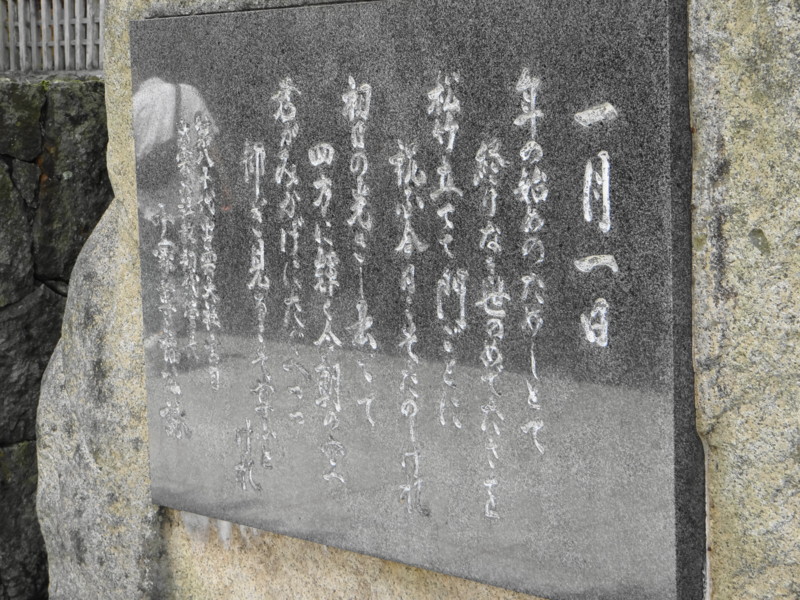 一月一日
年の始めのためしとて
終りなき世のめでたさを
松竹立てて門ごとに
祝ふ今日こそたのしけれ
初日の光さし出でて
四方に輝く今朝の空
君がみかげにたぐへつつ
仰ぎ見るこそ尊とけれ
第八十代出雲大社